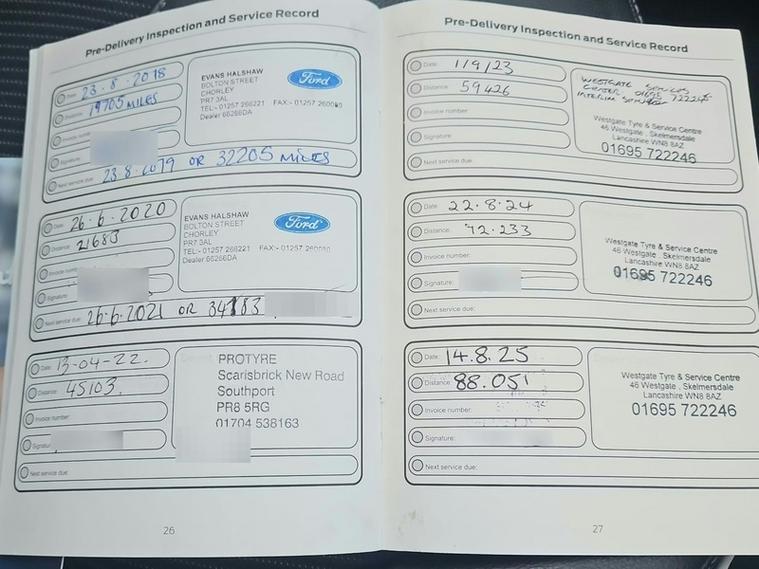 Pre-Delivery Inspection and Service Record
Date: 23-8-2018
Distance: 19705 MILES
Invoice number:
Signature:
Next service due: 23-8-2019 OR 32205 MILES
EVANS HALSHAW
BOLTON STREET
CHORLEY
PR7 3AL
TEL:- 01257 268221 FAX:- 01257
Dealer 66266DA
Ford
Date: 26-6-2020
Distance: 21683
Invoice
Signature:
Next service due: 26-6-2021 OR 34183
EVANS HALSHAW
BOLTON STREET
CHORLEY
PR7 3AL
TEL:- 01257 268221 FAX:- 01257
Dealer 66266DA
Ford
Date: 13-04-22.
Distance: 45103.
Invoice number:
Next service due:
PROTYRE
Scarisbrick New Road
Southport
PR8 5RG
01704 538163
26
Pre-Delivery Inspection and Service Record
Date: 1/9/23
Distance: 59426
Invoice number:
Signature:
Next service due:
WESTGATE
01695 722246
INTERIM
Westgate Tyre & Service Centre
46 Westgate, Skelmersdale
Lancashire WN8 8AZ
01695 722246
Date: 22.8.24
Distance: 72.233
Invoice number:
Signature:
Next service due:
Westgate Tyre & Service Centre
46 Westgate, Skelmersdale
Lancashire WN8 8AZ
01695 722246
Date: 14.8.25
Distance: 88.051
Invoice number:
Signature:
Next service due:
Westgate Tyre & Service Centre
46 Westgate, Skelmersdale
Lancashire WN8 8AZ
01695 722246
27